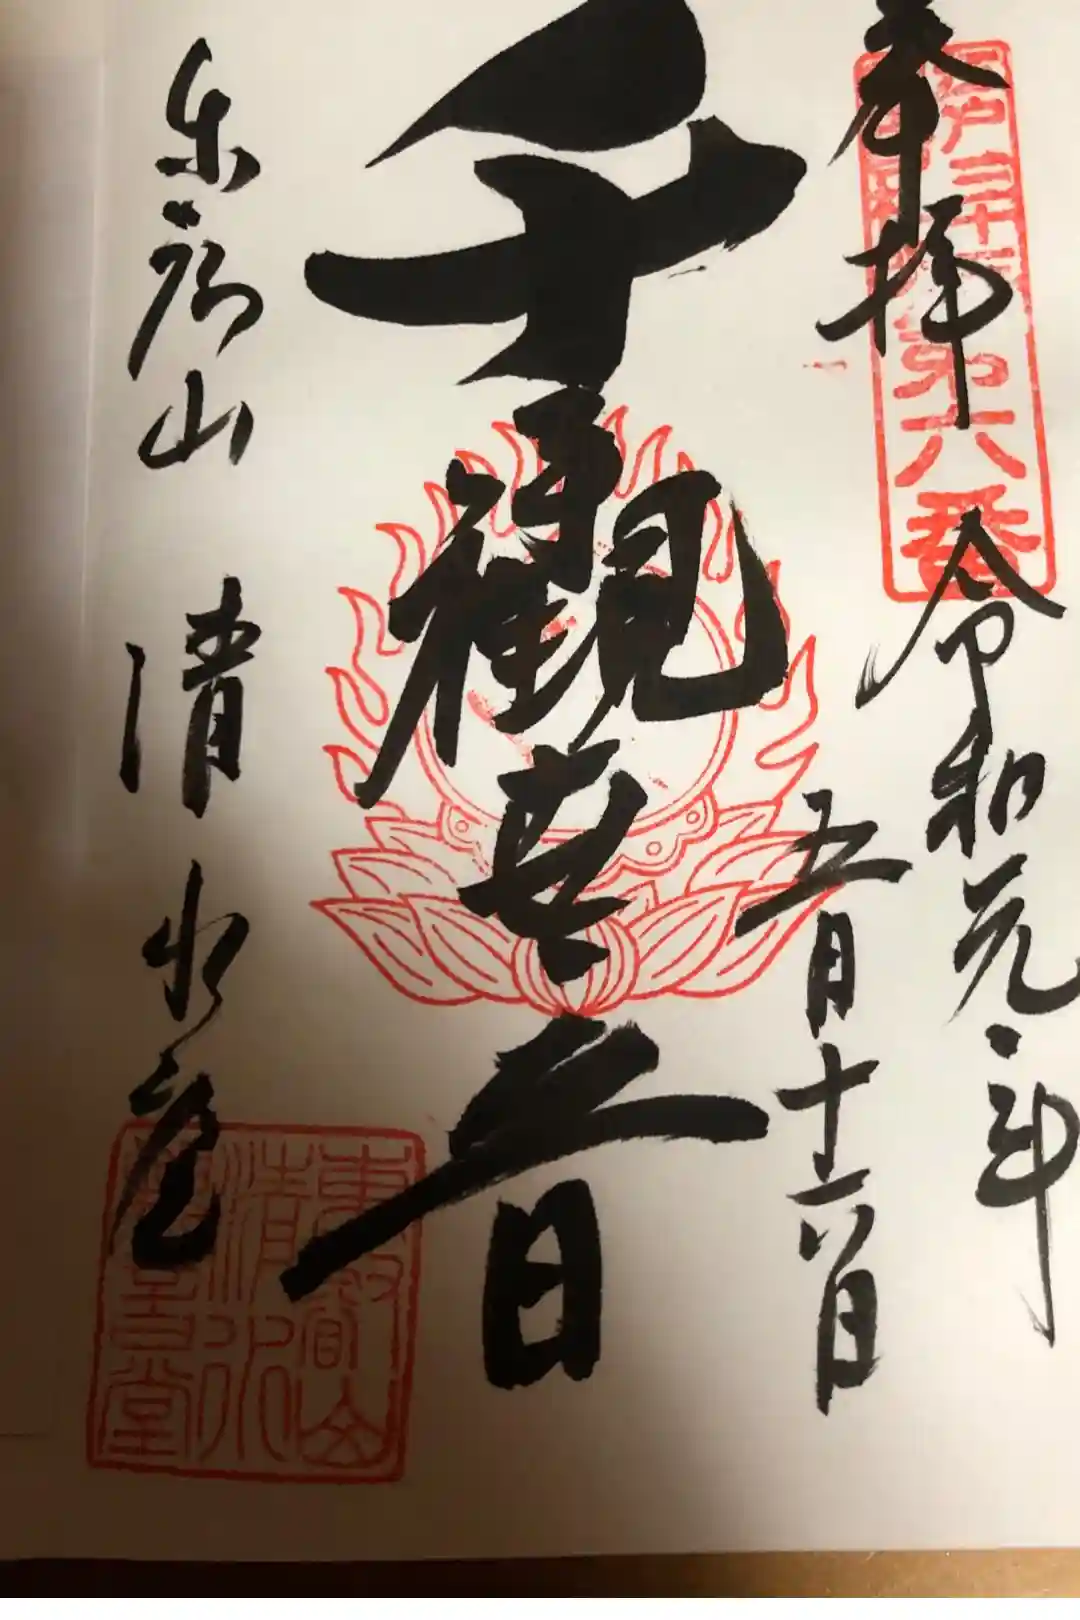 奉拝
江戸三十三所第六番
令和元年
五月十六日
千手観世音
東叡山 清水堂
東叡山
清水
觀音堂